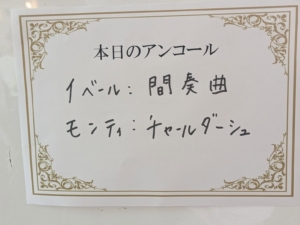 本日のアンコール
イベール：間奏曲
モンティ：チャールダーシュ